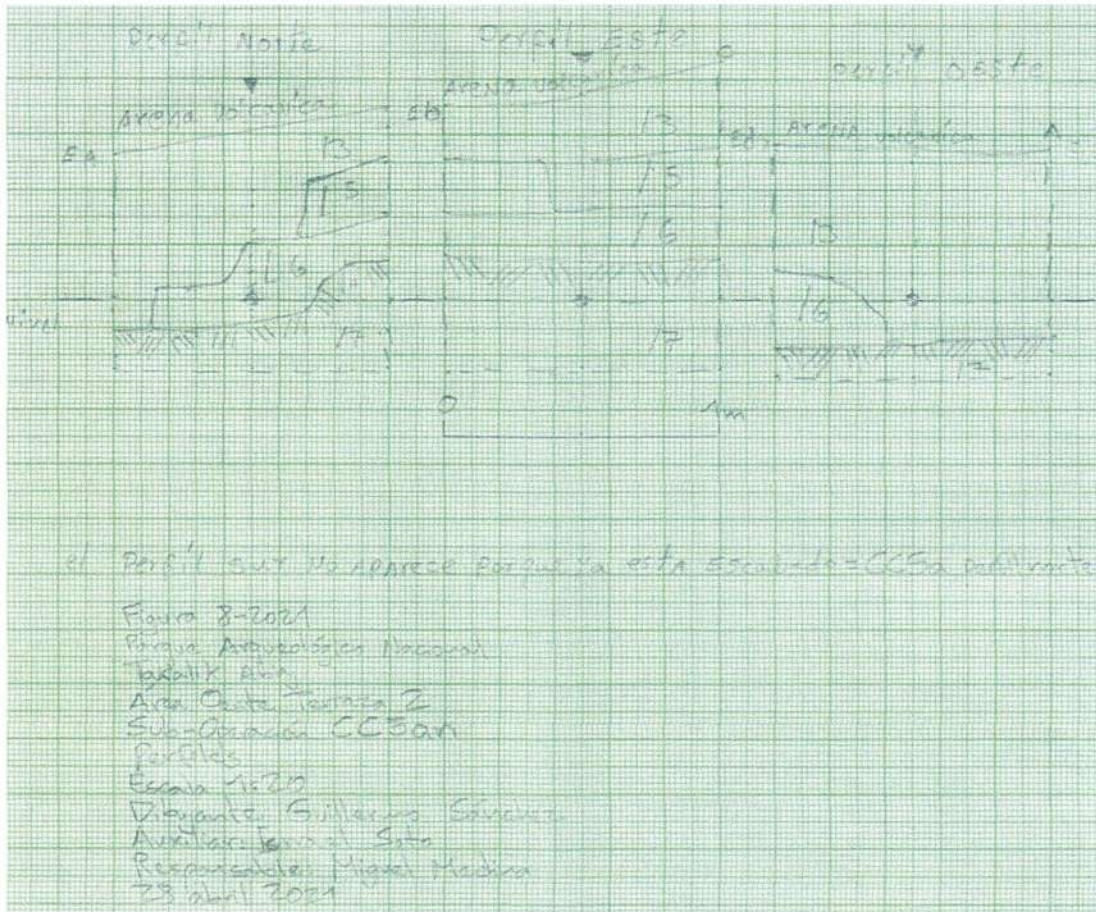 Perfil Norte
Arena Volcanica
EA
13
15
16
17
nivel
Perfil Este
Arena volcanica
Eb
C
13
15
16
17
0 1m
Perfil Oeste
Ed
Arena volcanica
A
13
16
17
el Perfil sur No Aparece porque ya esta Escabado = CC5a Perfil norte
Figura 8-2021
Parque Arqueológico Nacional
Takalik Abaj
Area Oeste Terraza 2
Sub-Operación CC5an
Perfiles
Escala 1:20
Dibujante Guillermo Sánchez
Auxiliar: Soto
Responsable: Miguel Medina
abril 2021